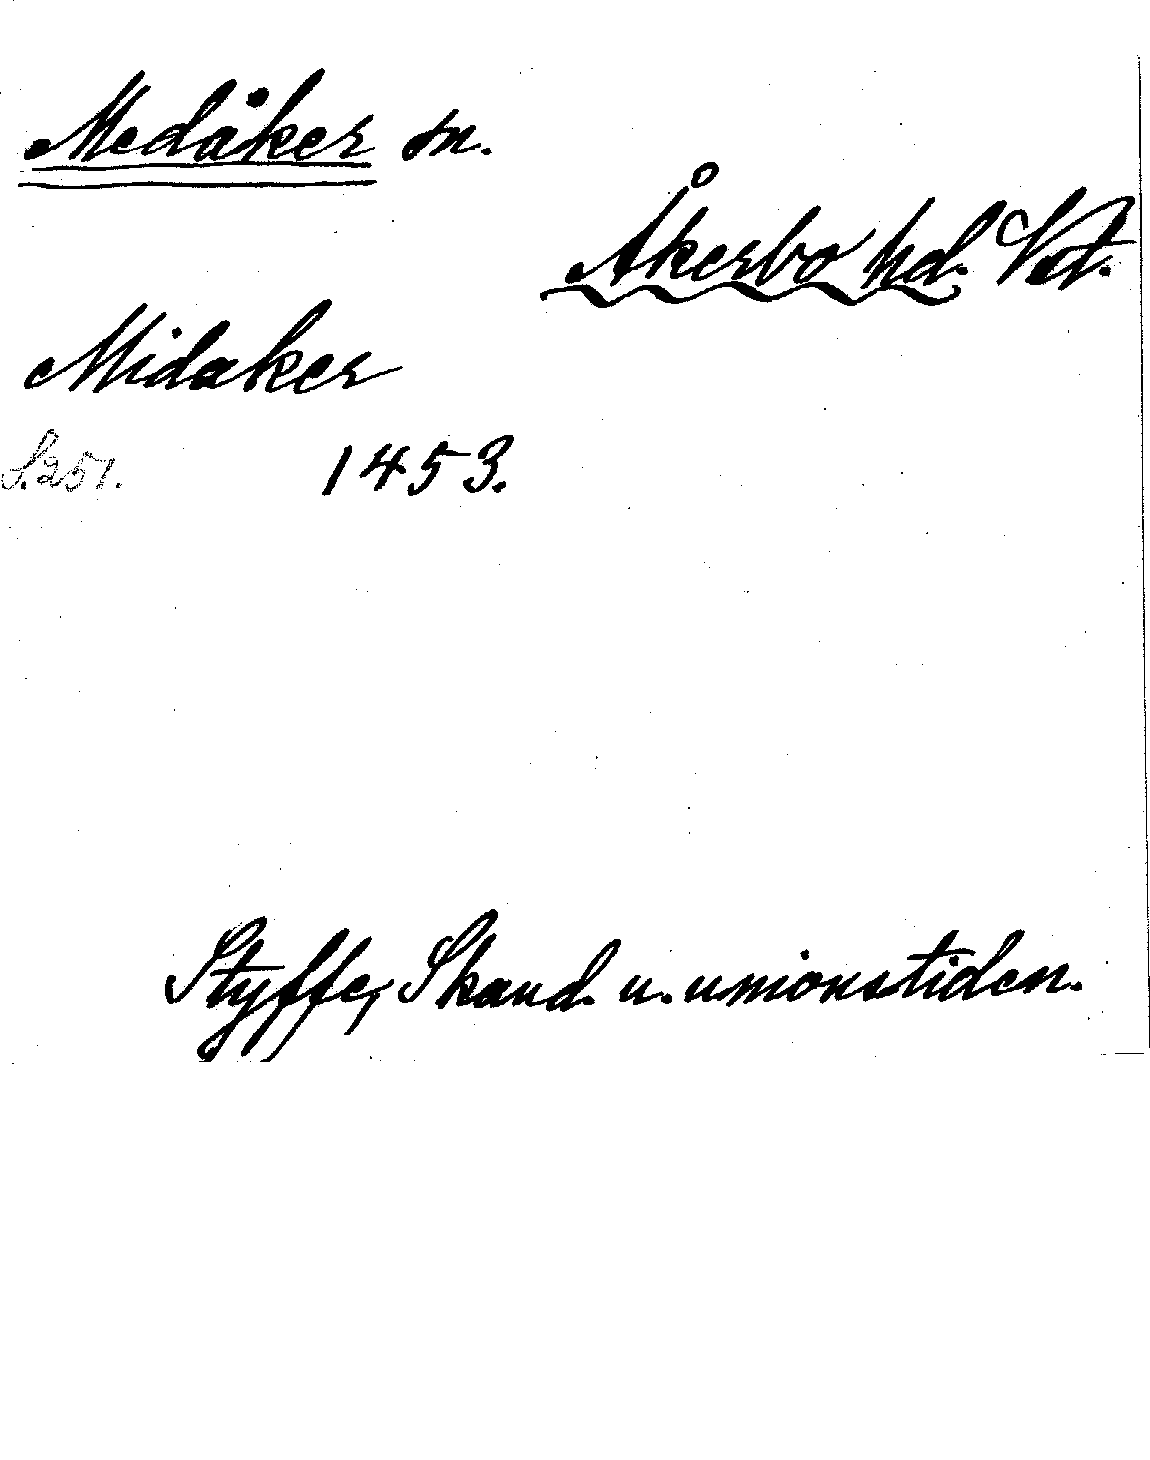 Medåker sn.
Åkerbo hd. Vstm.
Midaker
S. 251. 1453.
Styffe, Skand. u. unionstiden.